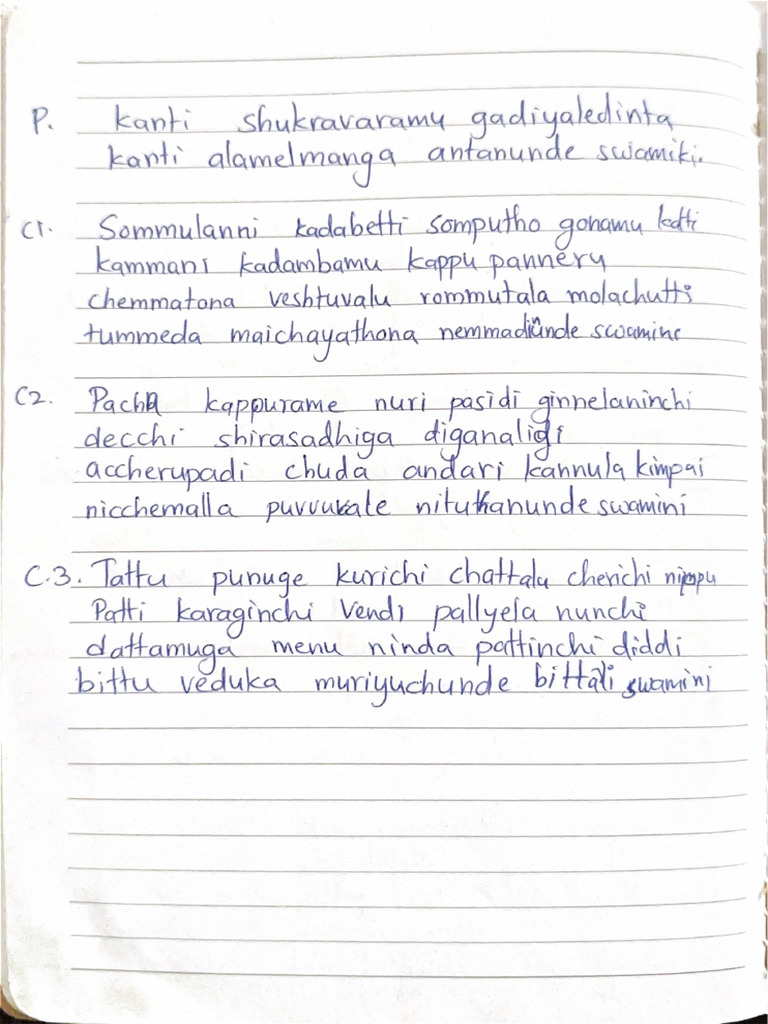 P. kanti shukravaramu gadiyaledinta
kanti alamelmanga antanunde swamiki.
C1. Sommulanni kadabetti somputho gonamu katti
kammani kadambamu kappu panneru
chemmatona veshtuvalu rommutala molachutti
tummeda maichayathona nemmadinunde swamini
C2. Pacha kappurame nuri pasidi ginnelaninchi
decchi shirasadhiga diganalidi
accherupadi chuda andari kannula kimpai
nicchemalla puvvuvale nituthanunde swamini
C.3. Tattu punuge kurichi chattalu cherichi nippu
Patti karaginchi vendi pallyela nunchi
dattamuga menu ninda pattinchi diddi
bittu veduka muriyuchunde bittali swamini